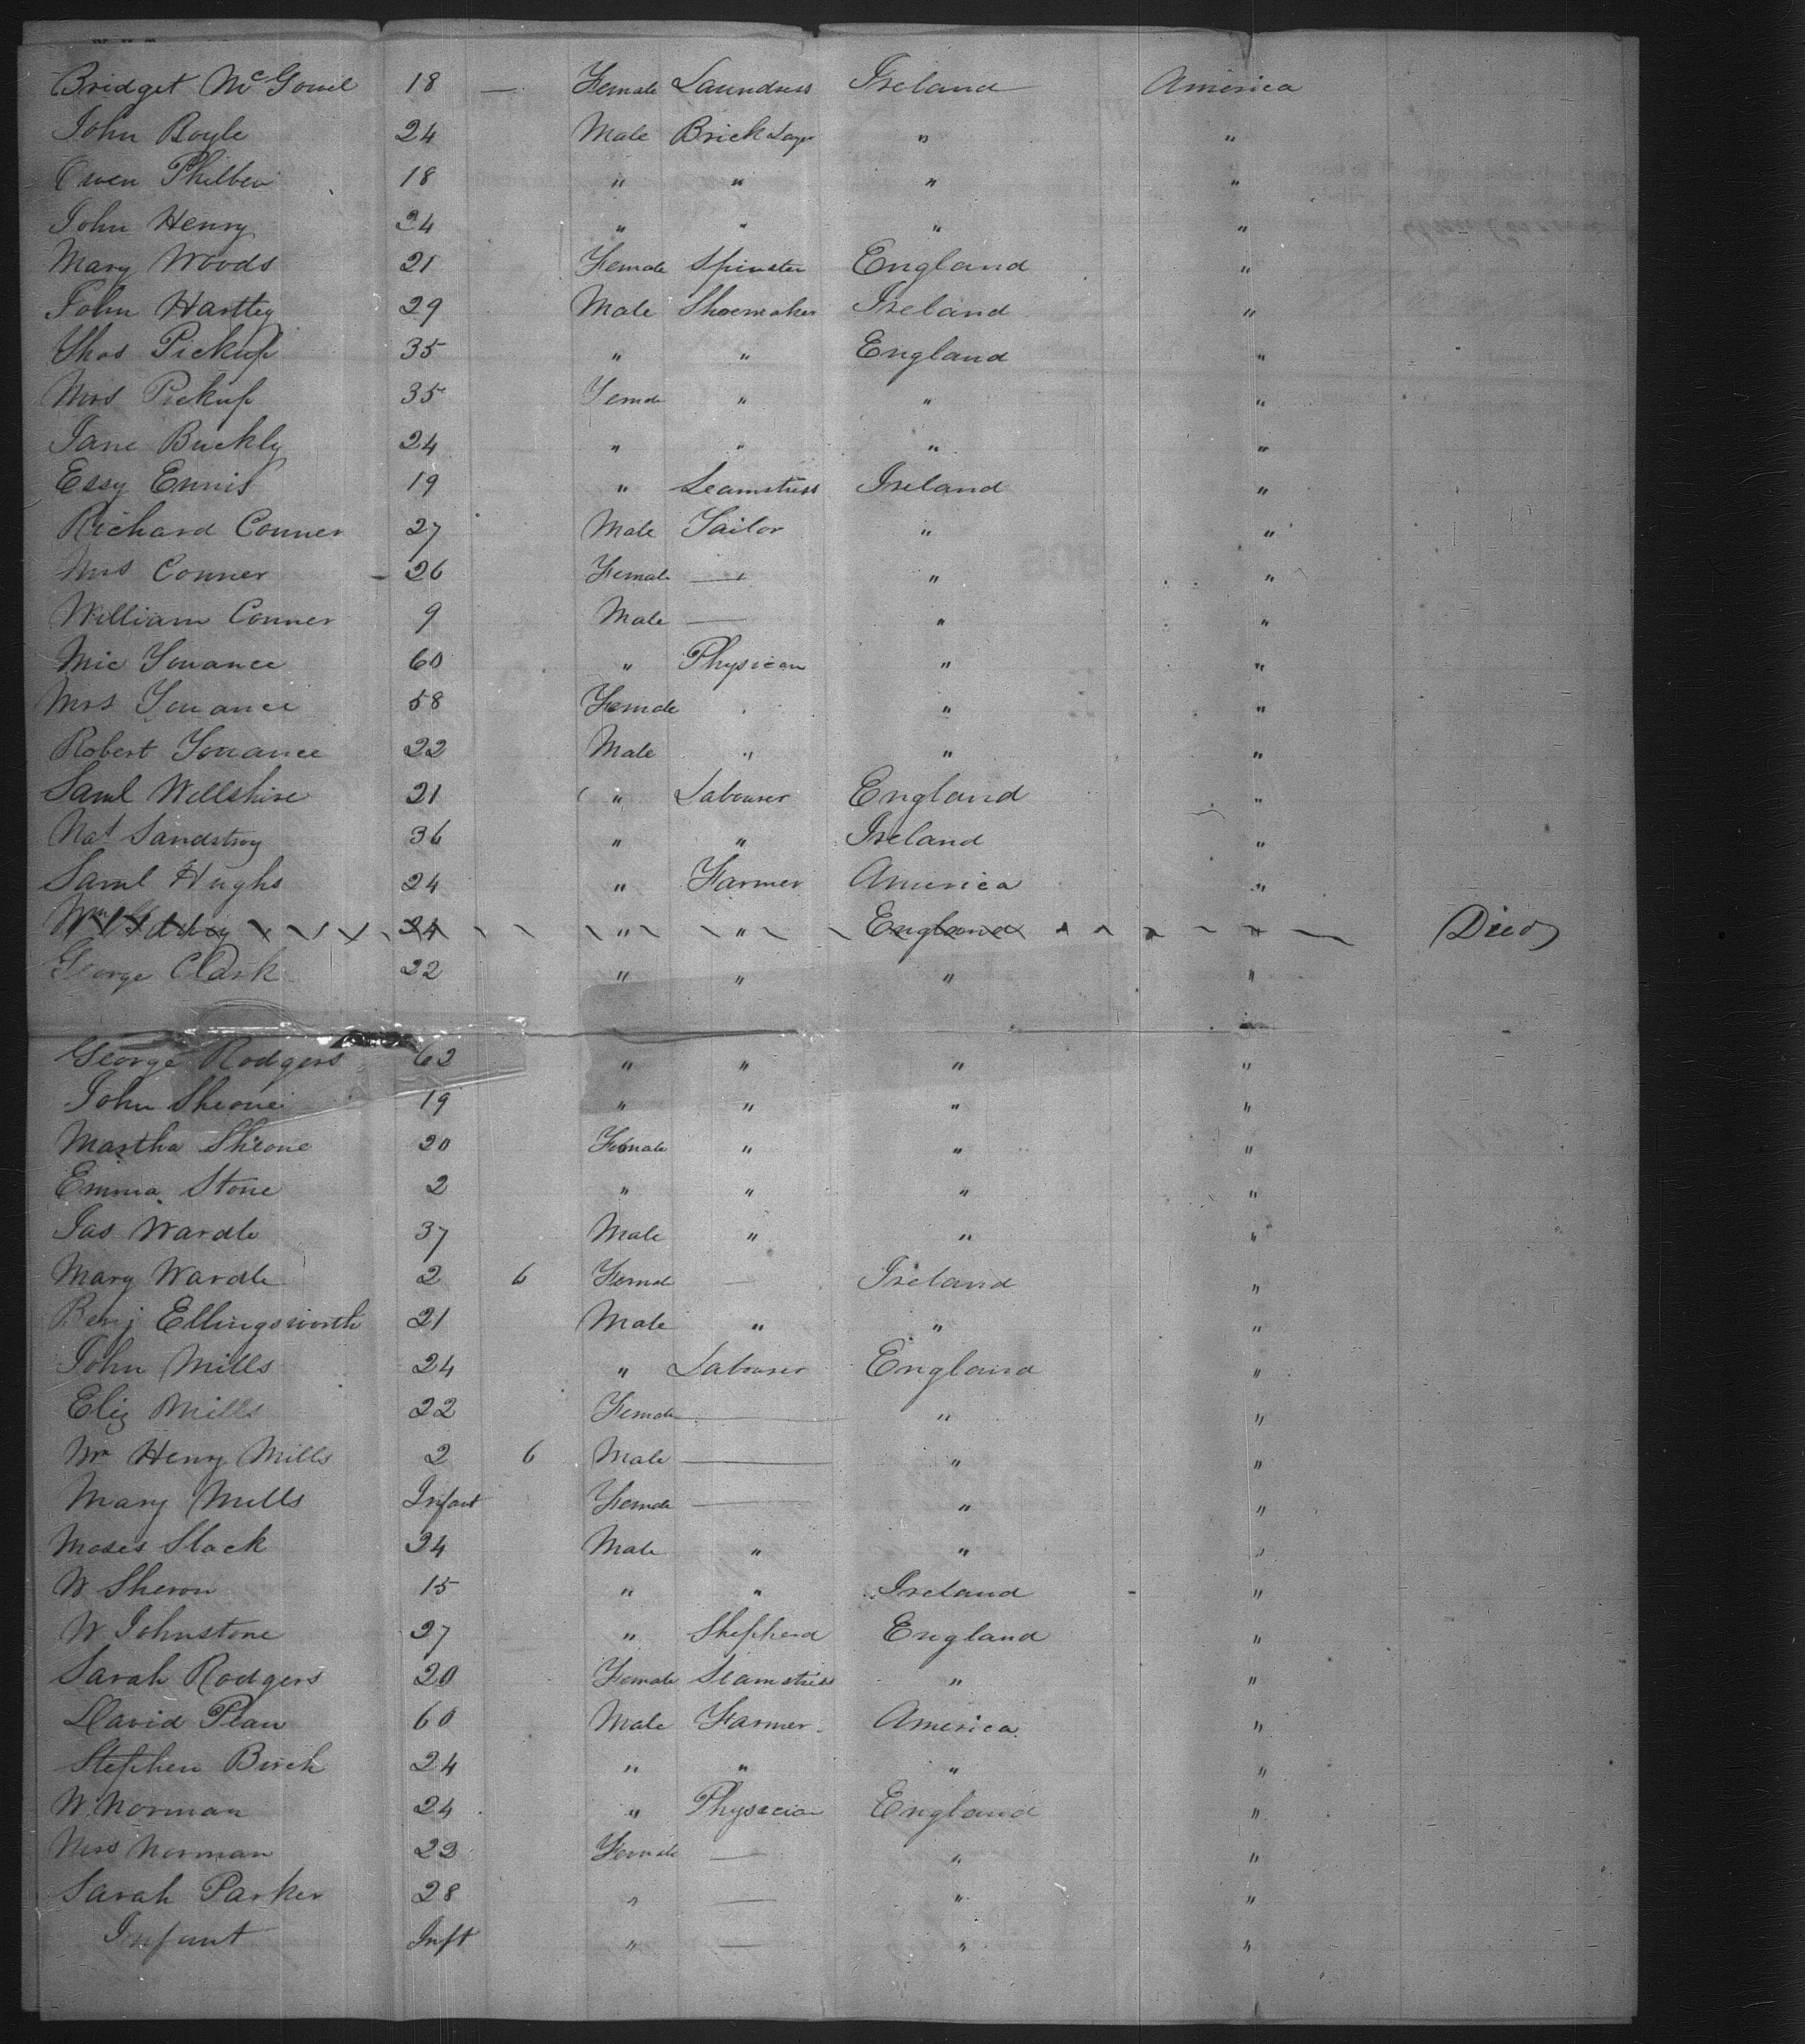 Bridget McGowel 18 — Female Laundress Ireland America
John Boyle 24 Male Brick Layr " "
Owen Philben 18 " " " "
John Henry 24 " " " "
Mary Woods 21 Female Spinster England "
John Hartley 29 Male Shoemaker Ireland "
Thos Pickup 35 " " England "
Mrs Pickup 35 Female " " "
Jane Buckly 24 " " " "
Essy Ennis 19 " Seamstress Ireland "
Richard Conner 27 Male Tailor " "
Mrs Conner 26 Female — " "
William Conner 9 Male — " "
Mic 60 " Physican " "
Mrs 58 Female " "
Robert 22 Male " " "
Saml Wellshire 21 " Labourer England "
Nat 36 " " Ireland "
Saml Hughs 24 " Farmer America "
Wm 24 " " England " Died
George Clark 22 " " " "
George Rodgers 62 " " " "
John Sheone 19 " " " "
Martha Sheone 20 Female " " "
Emma Stone 2 " " " "
Jas Wardle 37 Male " " "
Mary Wardle 2 6 Female — Ireland "
Benj Ellingsworth 21 Male " " "
John Mills 24 " Labourer England "
Eliz Mills 22 Female — " "
Wm Henry Mills 2 6 Male — " "
Mary Mills Infant Female — " "
Moses Slack 34 Male " " "
W Sheron 15 " " Ireland "
W Johnstone 27 " Shepherd England "
Sarah Rodgers 20 Female Seamstress " "
David Plau 60 Male Farmer America "
Stephen Birch 24 " " " "
W. Norman 24 " Physician England "
Mrs Norman 23 Female — " "
Sarah Parker 28 " — " "
Infant Inft " — " "